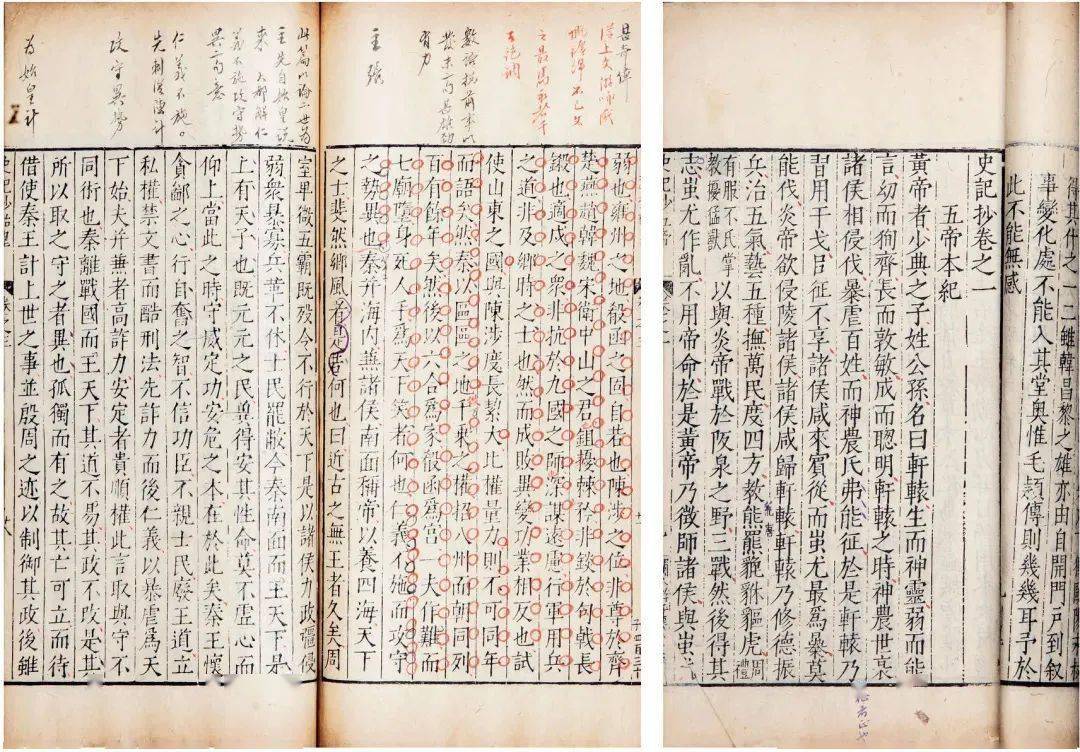 得其什之一二雖韓昌黎之雄亦由自開門戶到叙
事變化處不能入其堂奧惟毛穎傳則幾幾耳予於
此不能無感
史記抄卷之一
五帝本紀
黃帝者少典之子姓公孫名曰軒轅生而神靈弱而能
言幼而徇齊長而敦敏成而聰明軒轅之時神農世衰
諸侯相侵伐暴虐百姓而神農氏弗能征於是軒轅乃
習用干戈以征不享諸侯咸來賓從而蚩尤最爲暴莫
能伐炎帝欲侵陵諸侯諸侯咸歸軒轅軒轅乃修德振
兵治五氣藝五種撫萬民度四方教熊羆貔貅貙虎周禮
有服不氏掌教擾猛獸以與炎帝戰於阪泉之野三戰然後得其
志蚩尤作亂不用帝命於是黃帝乃徵師諸侯與蚩尤
史記抄五帝
弱也雍州之地殽函之固自若也陳涉之位非尊於齊
楚燕趙韓魏宋衛中山之君鉏耰棘矜非錟於句戟長
鎩也適戍之衆非抗於九國之師深謀遠慮行軍用兵
之道非及鄉時之士也然而成敗異變功業相反也試
使山東之國與陳涉度長絜大比權量力則不可同年
而語矣然秦以區區之地千乘之權招八州而朝同列
百有餘年矣然後以六合爲家殽函爲宮一夫作難而
七廟墮身死人手爲天下笑者何也仁義不施而攻守
之勢異也秦并海内兼諸侯南面稱帝以養四海天下
之士斐然鄉風若是者何也曰近古之無王者久矣周
室卑微五霸既歿令不行於天下是以諸侯力政彊侵
弱衆暴寡兵革不休士民罷敝今秦南面而王天下是
上有天子也既元元之民冀得安其性命莫不虛心而
仰上當此之時守威定功安危之本在於此矣秦王懷
貪鄙之心行自奮之智不信功臣不親士民廢王道立
私權禁文書而酷刑法先詐力而後仁義以暴虐爲天
下始夫并兼者高詐力安定者貴順權此言取與守不
同術也秦離戰國而王天下其道不易其政不改是其
所以取之守之者異也孤獨而有之故其亡可立而待
借使秦王計上世之事並殷周之迹以制御其政後雖
史記抄始皇
有力
主張
此篇以誨二世为
主先自始皇説
仁義不施。
攻守異勢
为始皇計